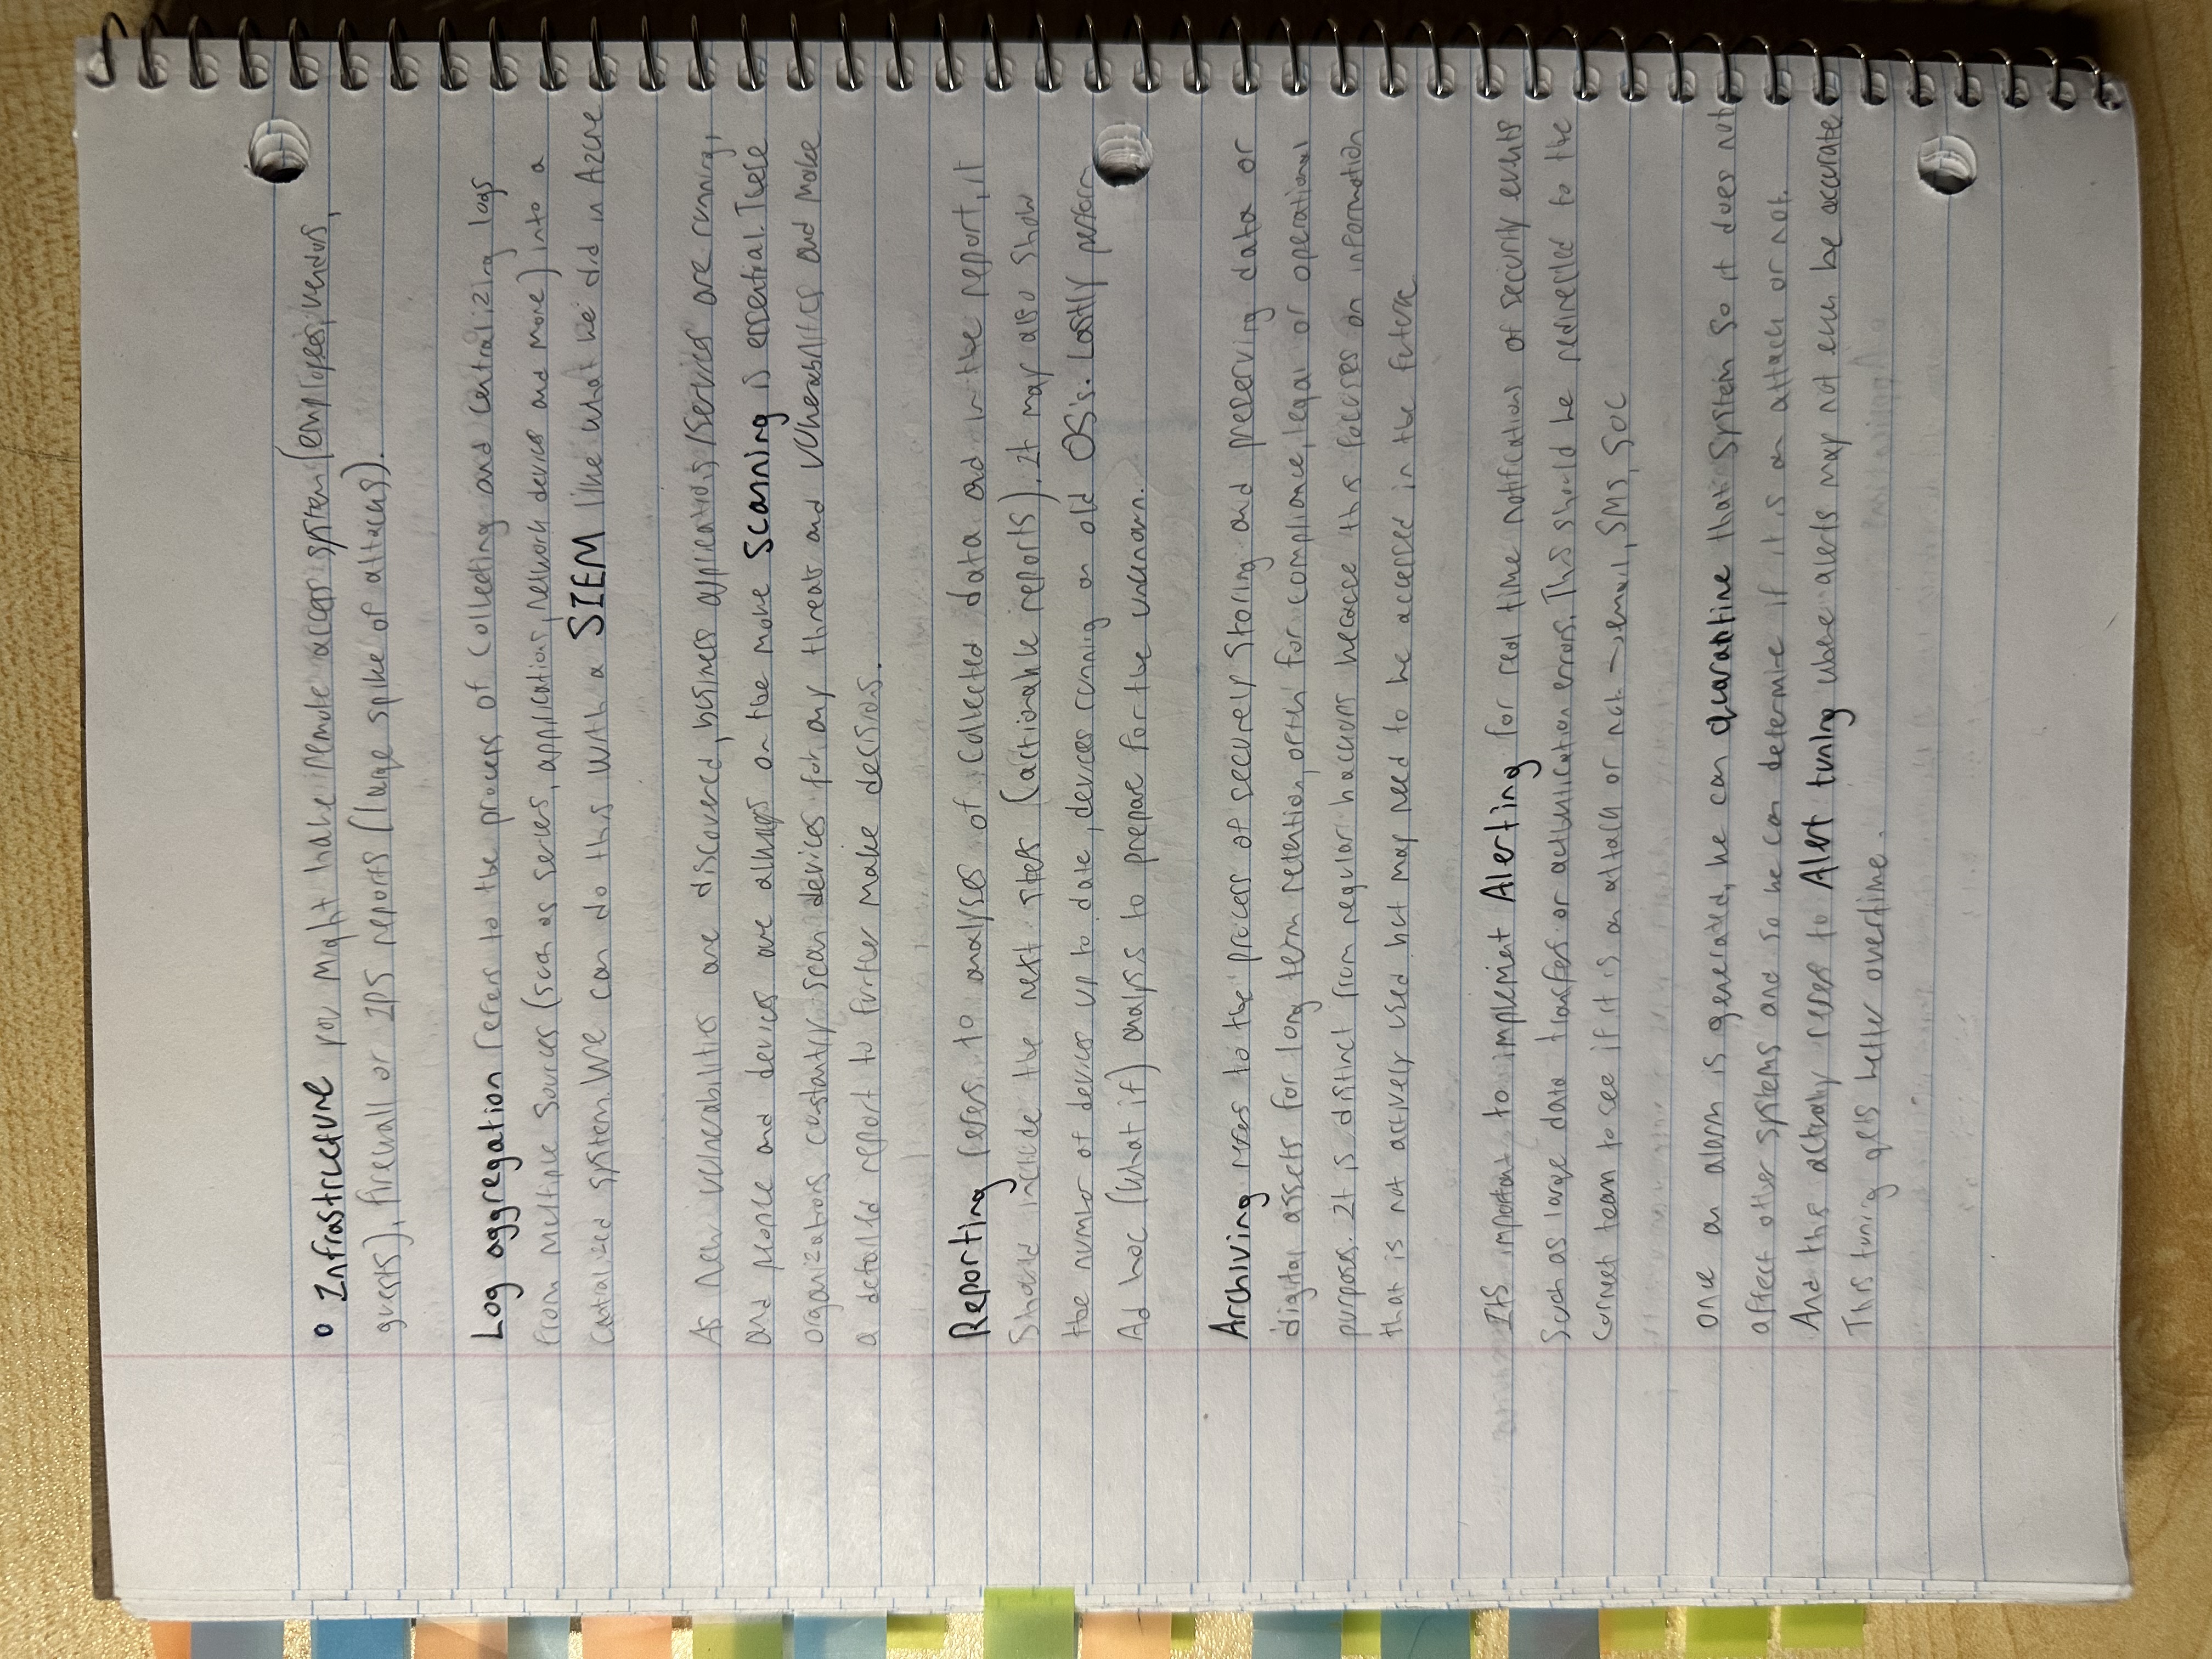 o Infrastructure you might have remote access system (employees, vendors,
guests), firewall or IPS reports (large spike of attacks).
Log aggregation refers to the process of collecting and centralizing logs
from multiple sources (such as servers, applications, network devices and more) into a
centralized system. We can do this with a SIEM like what we did in Azure
As new vulnerabilities are discovered, business applications/services are running,
and people and devices are always on the move scanning is essential. These
organizations constantly scan devices for any threats and vulnerabilities and make
a detailed report to further make decisions.
Reporting refers to analyses of collected data and in the report, it
should include the next steps (actionable reports). It may also show
the number of devices up to date, devices running on old OS's. Lastly perform
Ad hoc (what if) analysis to prepare for the unknown.
Archiving refers to the process of securely storing and preserving data or
digital assets for long term retention, often for compliance, legal or operational
purposes. It is distinct from regular backups because this focuses on information
that is not actively used but may need to be accessed in the future
Its important to implement Alerting for real time notifications of security events
such as large data transfers or authentication errors. This should be redirected to the
correct team to see if it is an attack or not → email, SMS, SOC
once an alarm is generated, we can quarantine that system so it does not
affect other systems and so we can determine if it is an attack or not.
And this actually refers to Alert tuning where alerts may not even be accurate
This tuning gets better overtime.